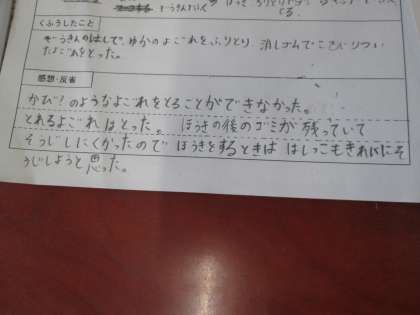 ぞうきん
くふうしたこと
ぞうきんのはしで、ゆかのよごれをふりとり、消しゴムでこびりつい
たよごれをとった。
感想・反省
かび!のようなよごれをとることができなかった。
とれるよごれはとった。 ほうきの後のゴミが残っていて
そうじしにくかったので ほうきをするときは はしっこもきれいにそ
うじしようと思った。